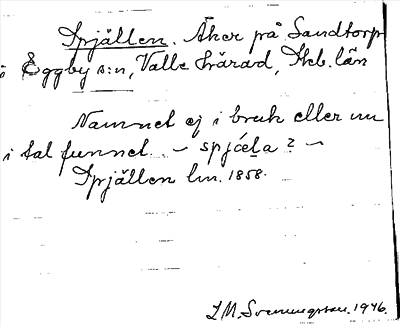 Spjällen. Åker på Sandtorp
i Eggby s:n, Valle härad, Skb. län
Namnet ej i bruk eller nu
i tal funnet. – spjæ̀la ? –
Spjällen lm. 1858.
I.M. Svenungsson. 1946.